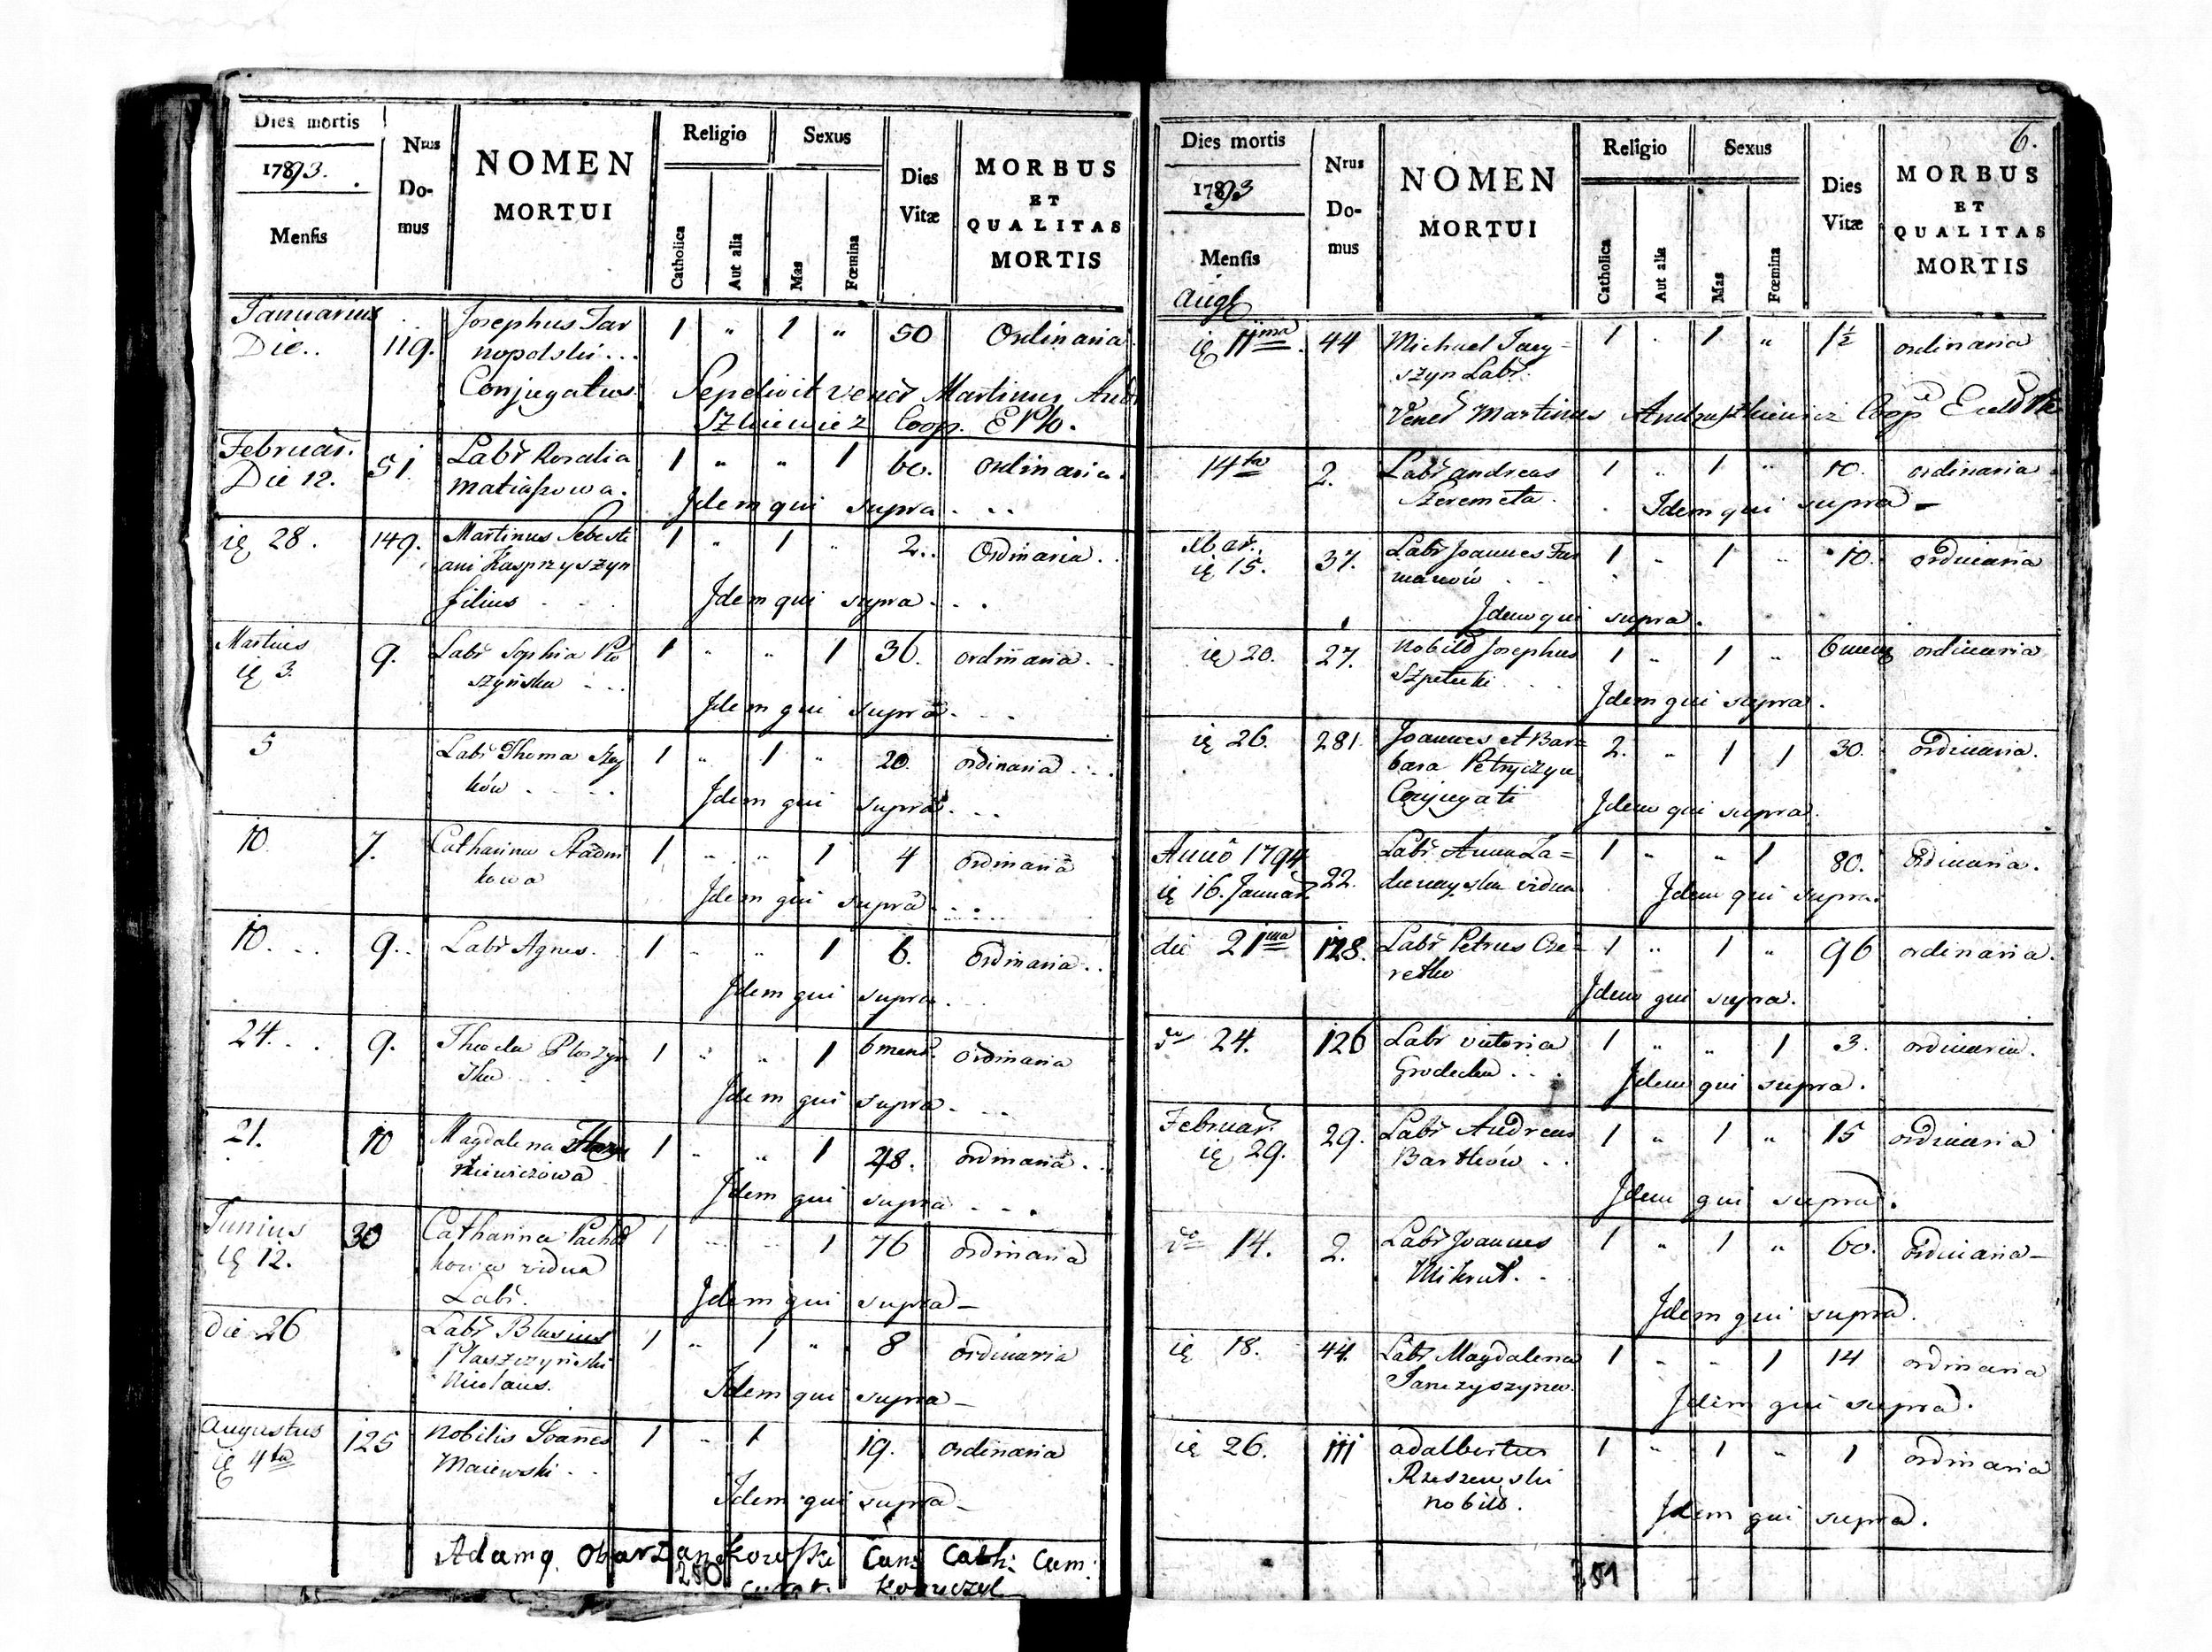 Dies mortis
17893.
Mensis
Nrus
Do-
mus
NOMEN
MORTUI
Religio
Catholica
Aut alia
Sexus
Mas
Fœmina
Dies
Vitæ
MORBUS
ET
QUALITAS
MORTIS
Januarius
Die.. 119. Josephus Tar 1 " 1 " 50 Ordinaria
nopolski...
Conjugatus. Sepelivit Vener Martinus
Coop.
Februar. 51. Labr Rosalia 1 " " 1 60. ordinaria.
Die 12. Matiaszowa.
Idem qui supra...
28. 149. Martinus Sebesti 1 " 1 " 2.. Ordinaria.
ani Kasprzyszyn
filius
Idem qui supra...
Martius 9. Labr Sophia Plo 1 " " 1 36. ordinaria.
3. szyńska
Idem qui supra...
5 Labr Thoma 1 " 1 " 20. ordinaria...
ków
Idem qui supra...
10. 7. Catharina Stadni 1 " " 1 4 ordinaria
kowa
Idem qui supra...
10. 9.. Labr Agnes. 1 " " 1 6. ordinaria..
Idem qui supra.
24. 9. Thecla Ploszyn 1 " " 1 6 mens. ordinaria
ska
Idem qui supra...
21. 10 Magdalena 1 " " 1 28. ordinaria..
kiewiczowa
Idem qui supra...
Junius 30 Catharina 1 " " 1 76 ordinaria
12. kowa vidua
Labr.
Idem qui supra-
Die 26 Labr Blasius 1 " 1 " 8 ordinaria
Nicolaus.
Idem qui supra-
Augustus 125 Nobilis Joannes 1 " 1 19. ordinaria
4ta Maiewski..
Idem qui supra-
Adamq. Obarzankowski Can: Cath: Cam:
250
6.
Dies mortis
17893
Mensis
Nrus
Do-
mus
NOMEN
MORTUI
Religio
Catholica
Aut alia
Sexus
Mas
Fœmina
Dies
Vitæ
MORBUS
ET
QUALITAS
MORTIS
11ma. 44 Michael 1 . 1 " 1½ ordinaria
szyn Labr.
Vener Martinus
14ta 2. Labr Andreas 1 " 1 " 10. ordinaria.
Szeremeta.
Idem qui supra-
15. 37. Labr Joannes Fur 1 " 1 " 10. ordinaria
manów
Idem qui supra.
20. 27. Nobilis Josephus 1 " 1 " 6 ordinaria
Idem qui supra.
26. 281. Joannes et Bar= 2. " 1 1 30. ordinaria.
bara Petryczyn
Conjugati Idem qui supra.
Anno 1794 22. Labr Anna 1 " " 1 80. ordinaria.
16. Januar. vidua
Idem qui supra.
die 21ma 128. Labr Petrus Cze= 1 " 1 " 96 ordinaria.
Idem qui supra.
24. 126 Labr Victoria 1 " " 1 3. ordinaria.
Grodecka...
Idem qui supra.
Februar. 29. Labr Andreas 1 " 1 " 15 ordinaria
29. Bartków..
Idem qui supra.
14. 2. Labr Joannes 1 " 1 " 60. ordinaria-
Idem qui supra.
18. 44. Labr Magdalena 1 " " 1 14 ordinaria
Janczyszyna.
Idem qui supra.
26. 111 Adalbertus 1 " 1 " 1 ordinaria
Rzeszewski
nobilis.
Idem qui supra.
251